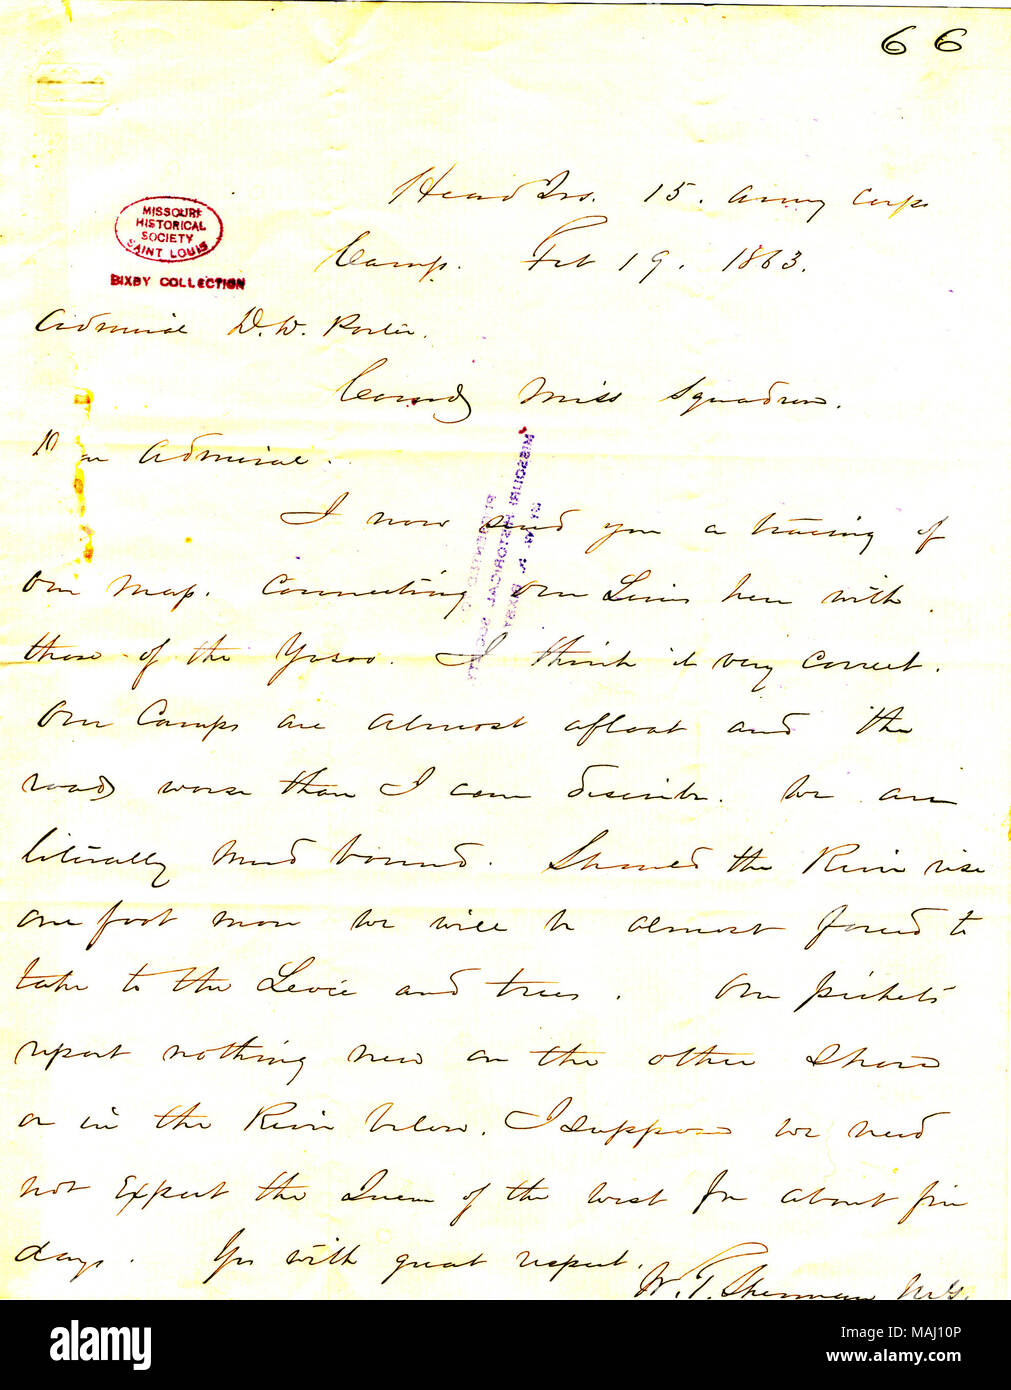 66
Head Qrs. 15. Army Corps
Camp. Feb 19. 1863.
MISSOURI
HISTORICAL
SOCIETY
SAINT LOUIS
BIXBY COLLECTION
Admiral D. W. Porter.
Comdg Miss Squadron.
Dear Admiral.
I now send you a tracing of
our map. Connecting our Lines here with
those of the Yazoo. I think it very correct.
Our Camps are almost afloat and the
roads worse than I can describe. We are
literally mud bound. Should the River rise
one foot more we will be almost forced to
take to the Levee and trees. Our pickets
report nothing new on the other shore
or in the River below. I suppose we need
not Expect the Queen of the West for about five
days. Yrs with great respect.
W. T. Sherman
MISSOURI HISTORICAL
alamy
Image ID: MAJ10P
www.alamy.com